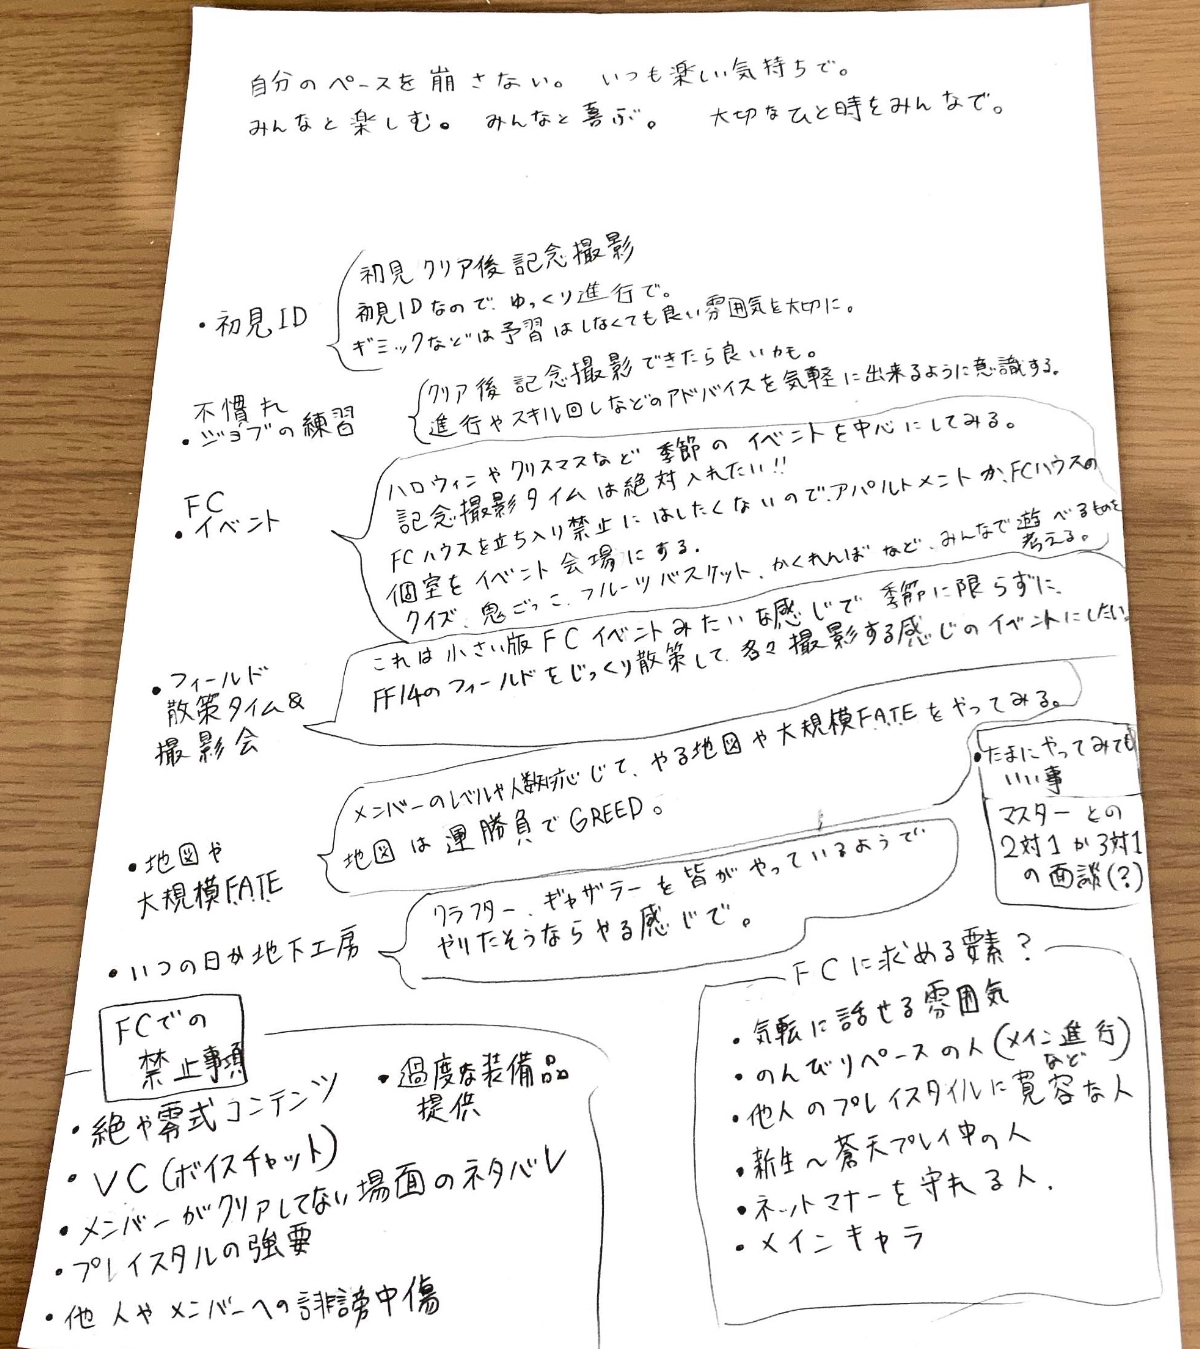 自分のペースを崩さない。 いつも楽しい気持ちで。
みんなと楽しむ。 みんなと喜ぶ。 大切なひと時をみんなで。
・初見ID
初見クリア後記念撮影
初見IDなので、ゆっくり進行で。
ギミックなどは予習はしなくても良い雰囲気を大切に。
不慣れ
・ジョブの練習
クリア後記念撮影できたら良いかも。
進行やスキル回しなどのアドバイスを気軽に出来るように意識する。
FC
・イベント
ハロウィンやクリスマスなど季節のイベントを中心にしてみる。
記念撮影タイムは絶対入れたい!!
FCハウスを立ち入り禁止にはしたくないので、アパルトメントか、FCハウスの
個室をイベント会場にする.
クイズ、鬼ごっこ、フルーツバスケット、かくれんぼなど、みんなで遊べるものを
考える。
・フィールド
散策タイム&
撮影会
これは小さい版FCイベントみたいな感じで季節に限らずに、
FF14のフィールドをじっくり散策して、各々撮影する感じのイベントにしたい。
・地図や
大規模F.A.T.E
メンバーのレベルや人数応じて、やる地図や大規模F.A.T.Eをやってみる。
地図は運勝負でGREED。
・たまにやってみても
いい事
マスターとの
2対1か3対1
の面談(?)
・いつの日か地下工房
クラフター、ギャザラーを皆がやっているようで
やりたそうならやる感じで。
FCでの
禁止事項
・絶や零式コンテンツ
・過度な装備品
提供
・VC(ボイスチャット)
・メンバーがクリアしてない場面のネタバレ
・プレイスタルの強要
・他人やメンバーへの誹謗中傷
FCに求める要素?
・気転に話せる雰囲気
・のんびりペースの人(メイン進行)
など
・他人のプレイスタイルに寛容な人
・新生〜蒼天プレイ中の人
・ネットマナーを守れる人.
・メインキャラ